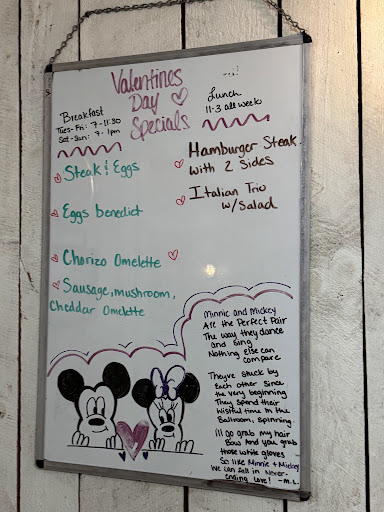 Valentines
Day
Specials
Breakfast
Tues-Fri: 7-11:30
Sat-Sun: 7-1pm
Lunch
11-3 all week
Steak & Eggs
Eggs benedict
Chorizo Omelette
Sausage, mushroom,
Cheddar Omelette
Hamburger Steak
with 2 Sides
Italian Trio
w/Salad
Minnie and Mickey
Are the Perfect Pair
The way they dance
and sing
Nothing else can
compare
Theyve stuck by
Each other Since
the very beginning
They spend their
Wistful time In the
Ballroom, spinning.
Ill go grab my hair
Bow And you grab
those white gloves
So like Minnie + Mickey
We can fall in Never-
ending love! -M.L.